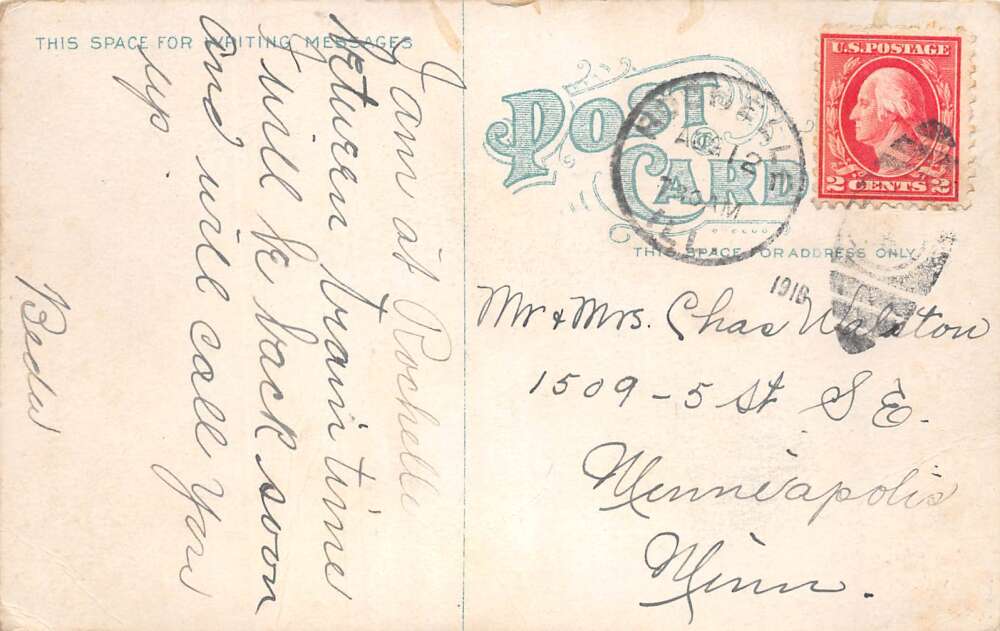 THIS SPACE FOR WRITING MESSAGES
I am at Rochelle
Return train time
I will be back soon
and will call you
up.
POST
CARD
THIS SPACE FOR ADDRESS ONLY
12
AM
ILL.
1918
U.S. POSTAGE
2 CENTS 2
Mr & Mrs. Chas Walston
1509 - 5 St S E.
Minneapolis
Minn.